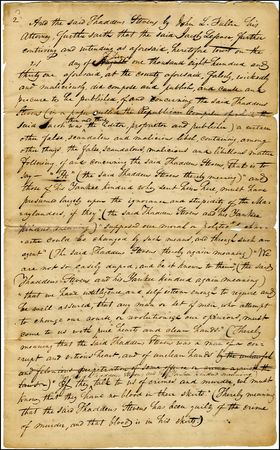 2
And the said Thaddeus Stevens by John L. Fuller his
Attorney further saith that the said Jacob Lefever further
contriving and intending as aforesaid heretofore to wit on the
day of August one thousand eight hundred and
thirty one aforesaid, at the county aforesaid falsely, wickedly
and maliciously did compose and publish, and cause and
procure to be published, of and concerning the said Thaddeus
Stevens (in a paper called the Republican Compiler of which the
said Jacob was the Editor, proprietor and publisher) a certain
other false, scandalous, malicious libel, containing among
other things the false, scandalous, malicious and libellous matter
following of and concerning the said Thaddeus Stevens, that is to
say— "He" (the said Thaddeus Stevens thereby meaning) "and
those of his Yankee kindred who sent him here, must have
presumed largely upon the ignorance and stupidity of the Mary-
landers, if they (the said Thaddeus Stevens and his Yankee
kindred meaning) supposed our moral or political char-
acter could be changed by such means, and through such an
agent" (the said Thaddeus Stevens thereby again meaning) "We
are not so easily duped, and be it known to them (the said
Thaddeus Stevens and his Yankee kindred again meaning)
that we have intellect and self esteem enough to regard and
be well assured, that any man or set of men, who attempt
to change our creeds or revolutionize our opinions, must
come to us with pure hearts and clean hands" (thereby
meaning that the said Thaddeus Stevens was a man of a cor-
rupt and vicious heart, and of unclean hands by the unlawful
and felonious perpetration of some
hands) "If they talk to us of crimes and murder, we must
know that they have no blood in their skirts" (thereby meaning
that the said Thaddeus Stevens has been guilty of the crime
of murder, and that blood is in his skirts)